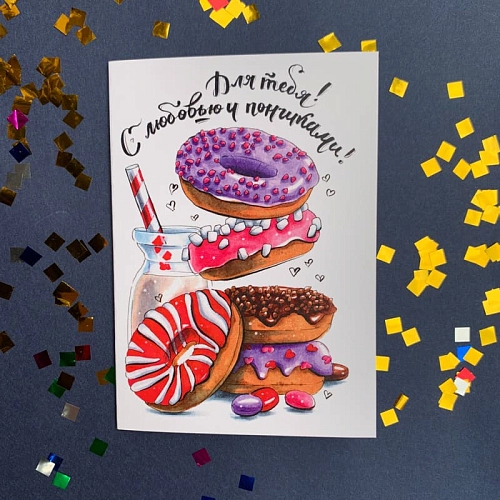 Для тебя!
С любовью и пончиками!